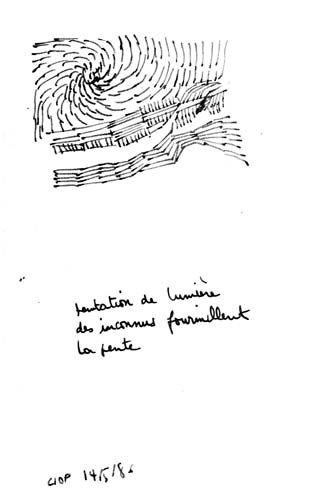 tentation de lumière
des inconnus fourmillent
la pente
14/5/86